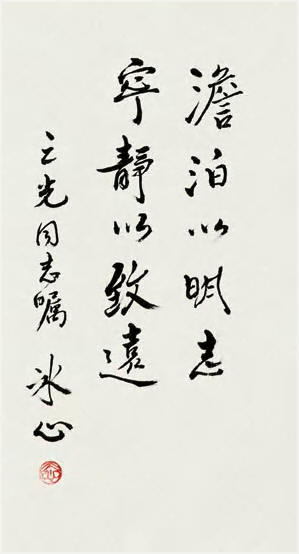 澹泊以明志
寧靜以致遠
之光同志嘱 冰心